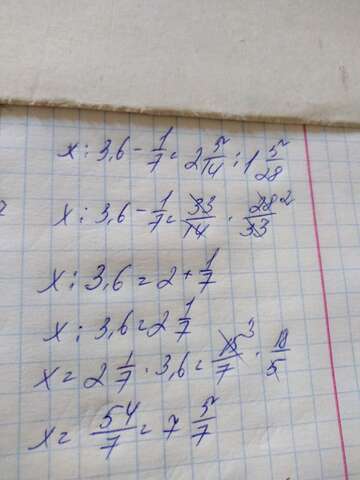 x : 3,6 - 1/7 = 2 5/14 : 1 5/28
x : 3,6 - 1/7 = 33/14 · 28/33 2
x : 3,6 = 2 + 1/7
x : 3,6 = 2 1/7
x = 2 1/7 · 3,6 = 15/7 3 · 18/5
x = 54/7 = 7 5/7